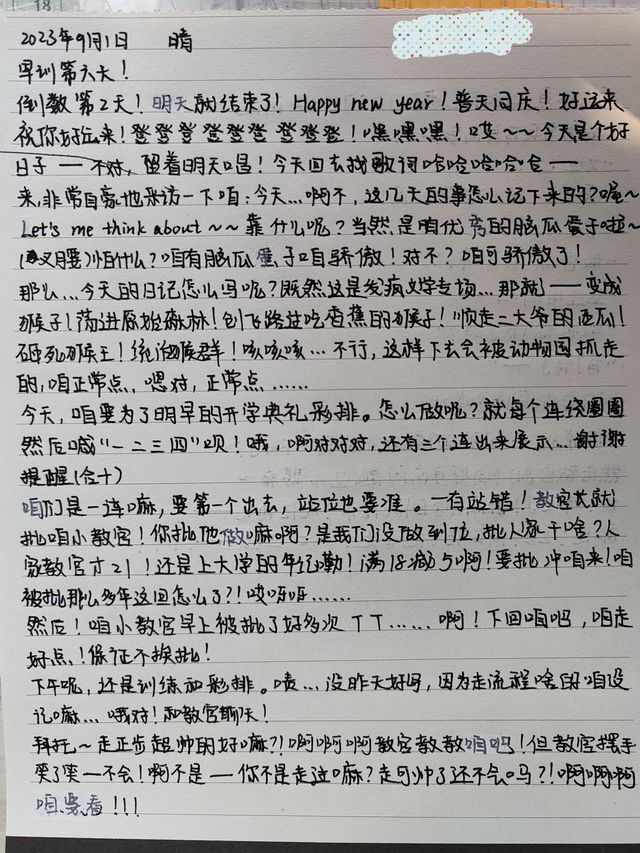 18
2023年9月1日 晴
早训第六天！
倒数第2天！明天就结束了！Happy new year！普天同庆！好运来
祝你好运来！登登登登登登登登登！嘿嘿嘿！哎～～今天是个好
日子——不对，留着明天唱！今天回去找歌词哈哈哈哈哈——
来，非常自豪地采访一下咱：今天…啊不，这几天的事怎么记下来的？喔～
Let's me think about～～靠什么呢？当然是咱优秀的脑瓜蛋子啦～
(又腰)咱什么？咱有脑瓜蛋子咱骄傲！对不？咱可骄傲了！
那么…今天的日记怎么写呢？既然这是发疯文学专场…那就——变成
猴子！荡进原始森林！创飞路过吃香蕉的猴子！顺走二大爷的西瓜！
砸死猴王！统治猴群！咳咳咳…不行，这样下去会被动物园抓走
的，咱正常点，嗯对，正常点……
今天，咱要为了明早的开学典礼彩排。怎么做呢？就每个连绕圈圈
然后喊“一二三四”呗！哦，啊对对对，还有三个连出来展示…谢谢
提醒(合十)
咱们是一连嘛，要第一个出去，站位也要准。一有站错！教官其就
批咱小教官！你批他做嘛啊？是我们没做到位，批人家干啥？人
家教官才21！还是上大学的年纪勒！满18减5啊！要批冲咱来！咱
被批那么多年这回怎么了？！哎呀呀……
然后！咱小教官早上被批了好多次TT……啊！下回咱吧，咱走
好点！保证不挨批！
下午呢，还是训练和彩排。啧…没昨天好写，因为走流程啥的咱没
记嘛…哦对！和教官聊天！
拜托～走正步超帅的好嘛？！啊啊啊教官教教咱吧！但教官摆手
笑了笑—不会！啊不是—你不是走过嘛？走可帅了还不会吗？！啊啊啊
咱要看！！！